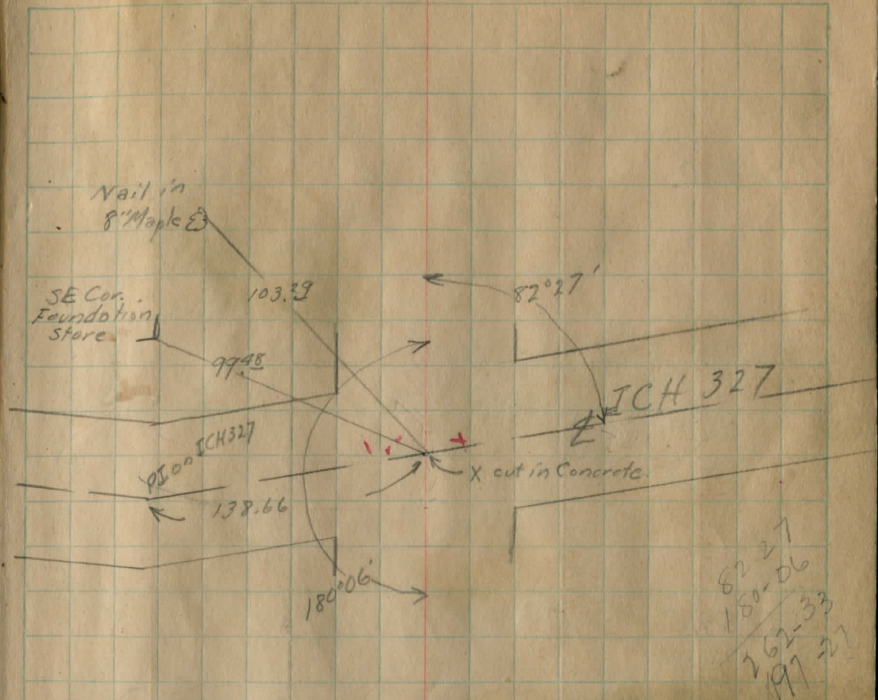 Nail in
8" Maple
103.29
82°27'
SE Cor.
Foundation
Store
99.48
ICH 327
PI on ICH 327
X cut in Concrete
138.66
180°06'
82 27
180-06
262-33
197-27